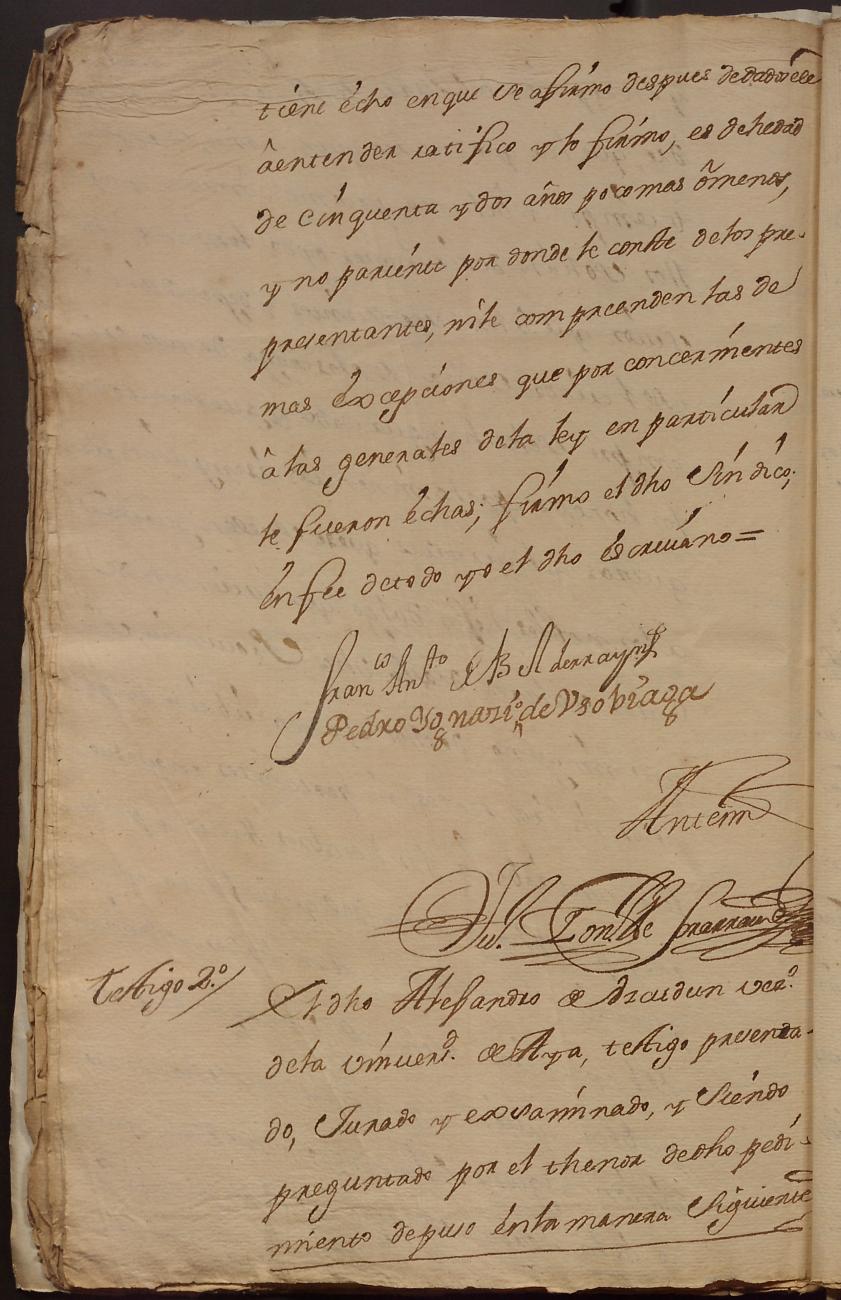 tiene écho enque se afirmo despues dedadosele
âentender ratifico y lo firmo, es dehedad
de Cinquenta y dos años pocomas ômenos,
y no pariente por donde le conste delos pre-
presentantes, nile comprenden las de
mas éxcepciones que por concernientes
âlas generales dela ley en particular
le fueron échas; firmo el dho Sindico;
énfee detodo yo el dho éscriuano =
Fran.co Anto de
Pedro Ygnazio de Vsobiaga
Antemi
testigo 2.º El dho Alesandro de vez.º
dela vniuersd. de Aya, testigo presenta-
do, Jurado y exsaminado, y Siendo
preguntado por el thenor dedho pedi-
miento depuso énla manera Siguiente